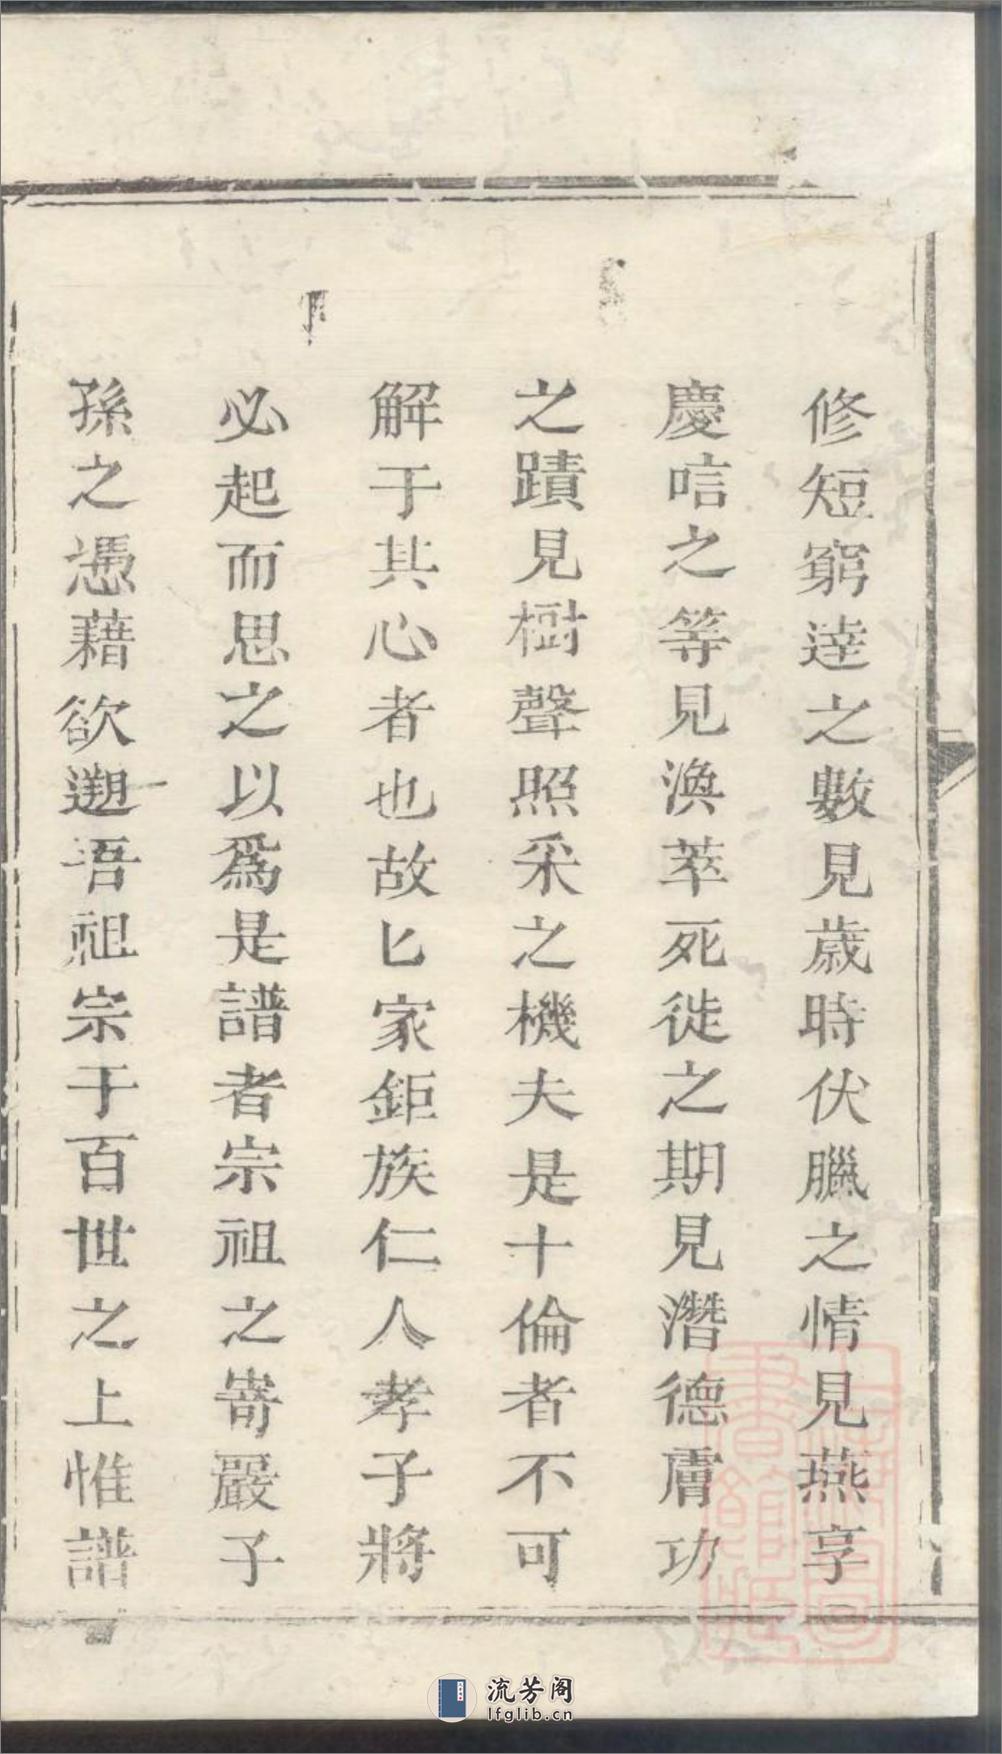 修短窮逹之數見歳時伏臘之情見燕享
慶唁之等見渙萃死徙之期見潛德膚功
之蹟見樹聲照采之機夫是十倫者不可
解于其心者也故匕家鉅族仁人孝子將
必起而思之以爲是譜者宗祖之嵜嚴子
孫之憑藉欲遡吾祖宗于百世之上惟譜
流芳阁
lfglib.cn